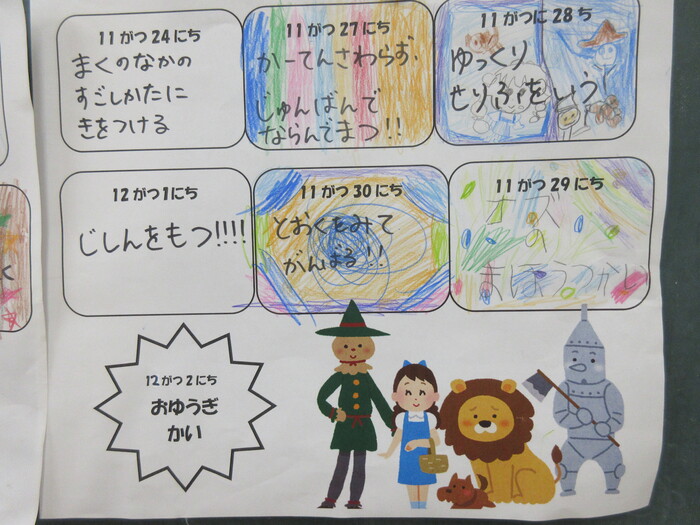 11がつ24にち
まくのなかの
すごしかたに
きをつける
11がつ27にち
かーてんさわらず、
じゅんばんで
ならんでまつ!!
11がつに28ち
ゆっくり
せりふをいう
11がつ29にち
オズ
の
まほうつかい
11がつ30にち
とおくをみて
がんばる!!
12がつ1にち
じしんをもつ!!!!
12がつ2にち
おゆうぎ
かい